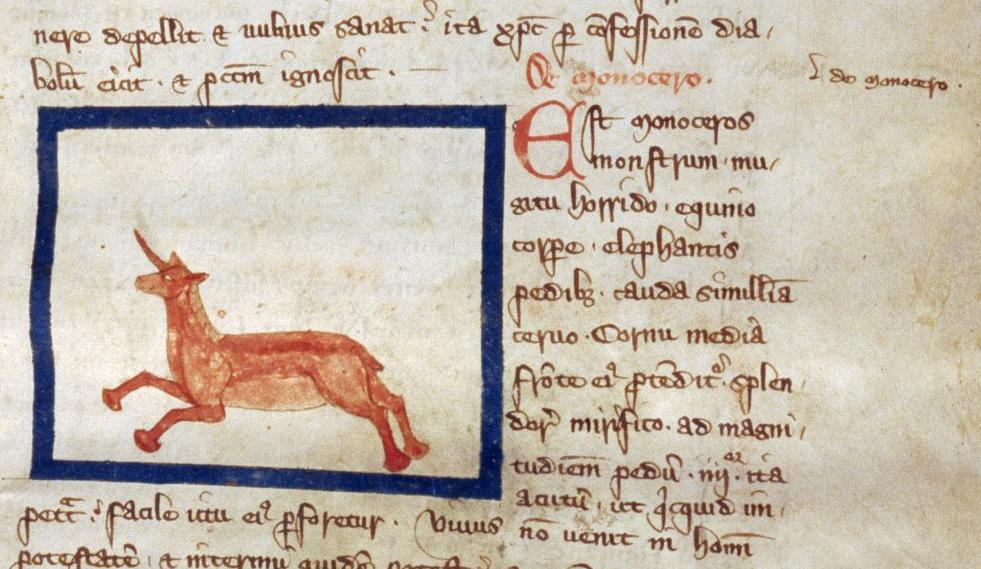 nere depellit ⁊ uulnus sanat. ita xp̄c ꝑ ꝯfessionē dia
bolū eicit. ⁊ pctm̄ ignoscit.
De monocero.
de monocero.
Est monoceros
monstrum mu
gitu horrido. equino
corꝑe. elephantis
pedibꝫ. cauda simillīa
ceruo. Cornu mediā
frōte eiꝰ ꝓtēdit᷑. splen
dor̄ mirifico. ad magni
tudiēm pedū. iiijor. ita
acutū. ut q̄cquid im
petat. facile ictu eiꝰ ꝑforetur. Viuus
nō uenit in homī
potestatē. ⁊ interimi quidē